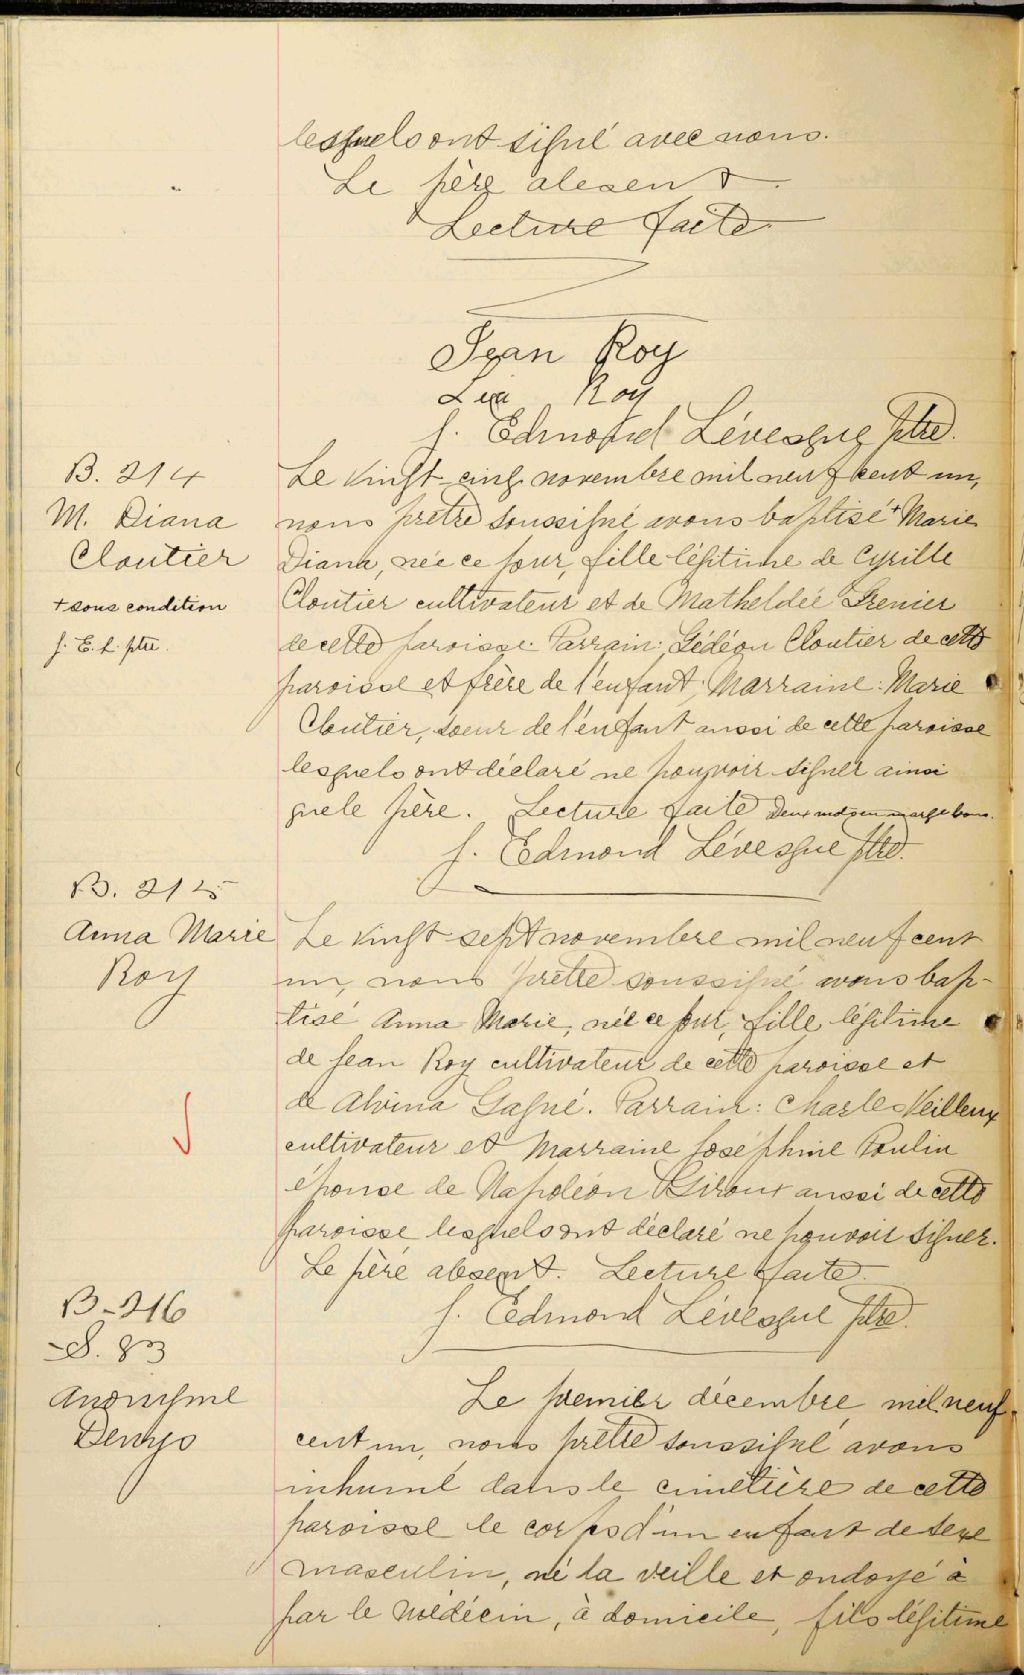 lesquels ont signé avec nous.
Le père absent.
Lecture faite
Jean Roy
Léa Roy
J. Edmond Lévesque ptre.
B. 214
M. Diana
Cloutier
+ sous condition
J. E. L. ptre.
Le vingt cinq novembre mil neuf cent un,
nous prêtre soussigné avons baptisé + Marie
Diana, née ce jour, fille légitime de Cyrille
Cloutier cultivateur et de Matheldée Grenier
de cette paroisse. Parrain: Gédéon Cloutier de cette
paroisse et frère de l'enfant, Marraine: Marie
Cloutier, soeur de l'enfant aussi de cette paroisse
lesquels ont déclaré ne pouvoir signer ainsi
que le père. Lecture faite Deux mots en marge bons.
J. Edmond Lévesque ptre.
B. 215
Anna Marie
Roy
Le vingt sept novembre mil neuf cent
un, nous prêtre soussigné avons bap-
tisé Anna Marie, née ce jour, fille légitime
de Jean Roy cultivateur de cette paroisse et
de Alvina Gagné. Parrain: Charles Veilleux
cultivateur et Marraine Joséphine Poulin
épouse de Napoléon Giroux aussi de cette
paroisse lesquels ont déclaré ne pouvoir signer.
Le père absent. Lecture faite.
J. Edmond Lévesque ptre.
B-216
S. 83
Anonyme
Denys
Le premier décembre mil neuf
cent un, nous prêtre soussigné avons
inhumé dans le cimetière de cette
paroisse le corps d'un enfant de sexe
masculin, né la veille et ondoyé à
par le médecin, à domicile, fils légitime